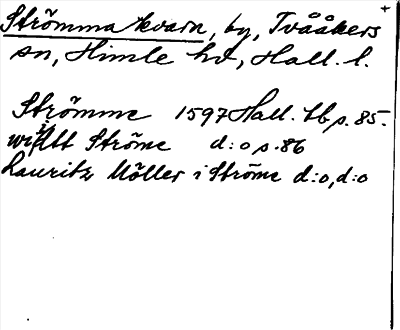 Strömma kvarn, by, Tvååkers
sn, Himle hd, Hall. l.
Strömme 1597 Hall. tb p. 85.
widtt Ströme d:o p. 86
Lauritz Möller i Ströme d:o, d:o